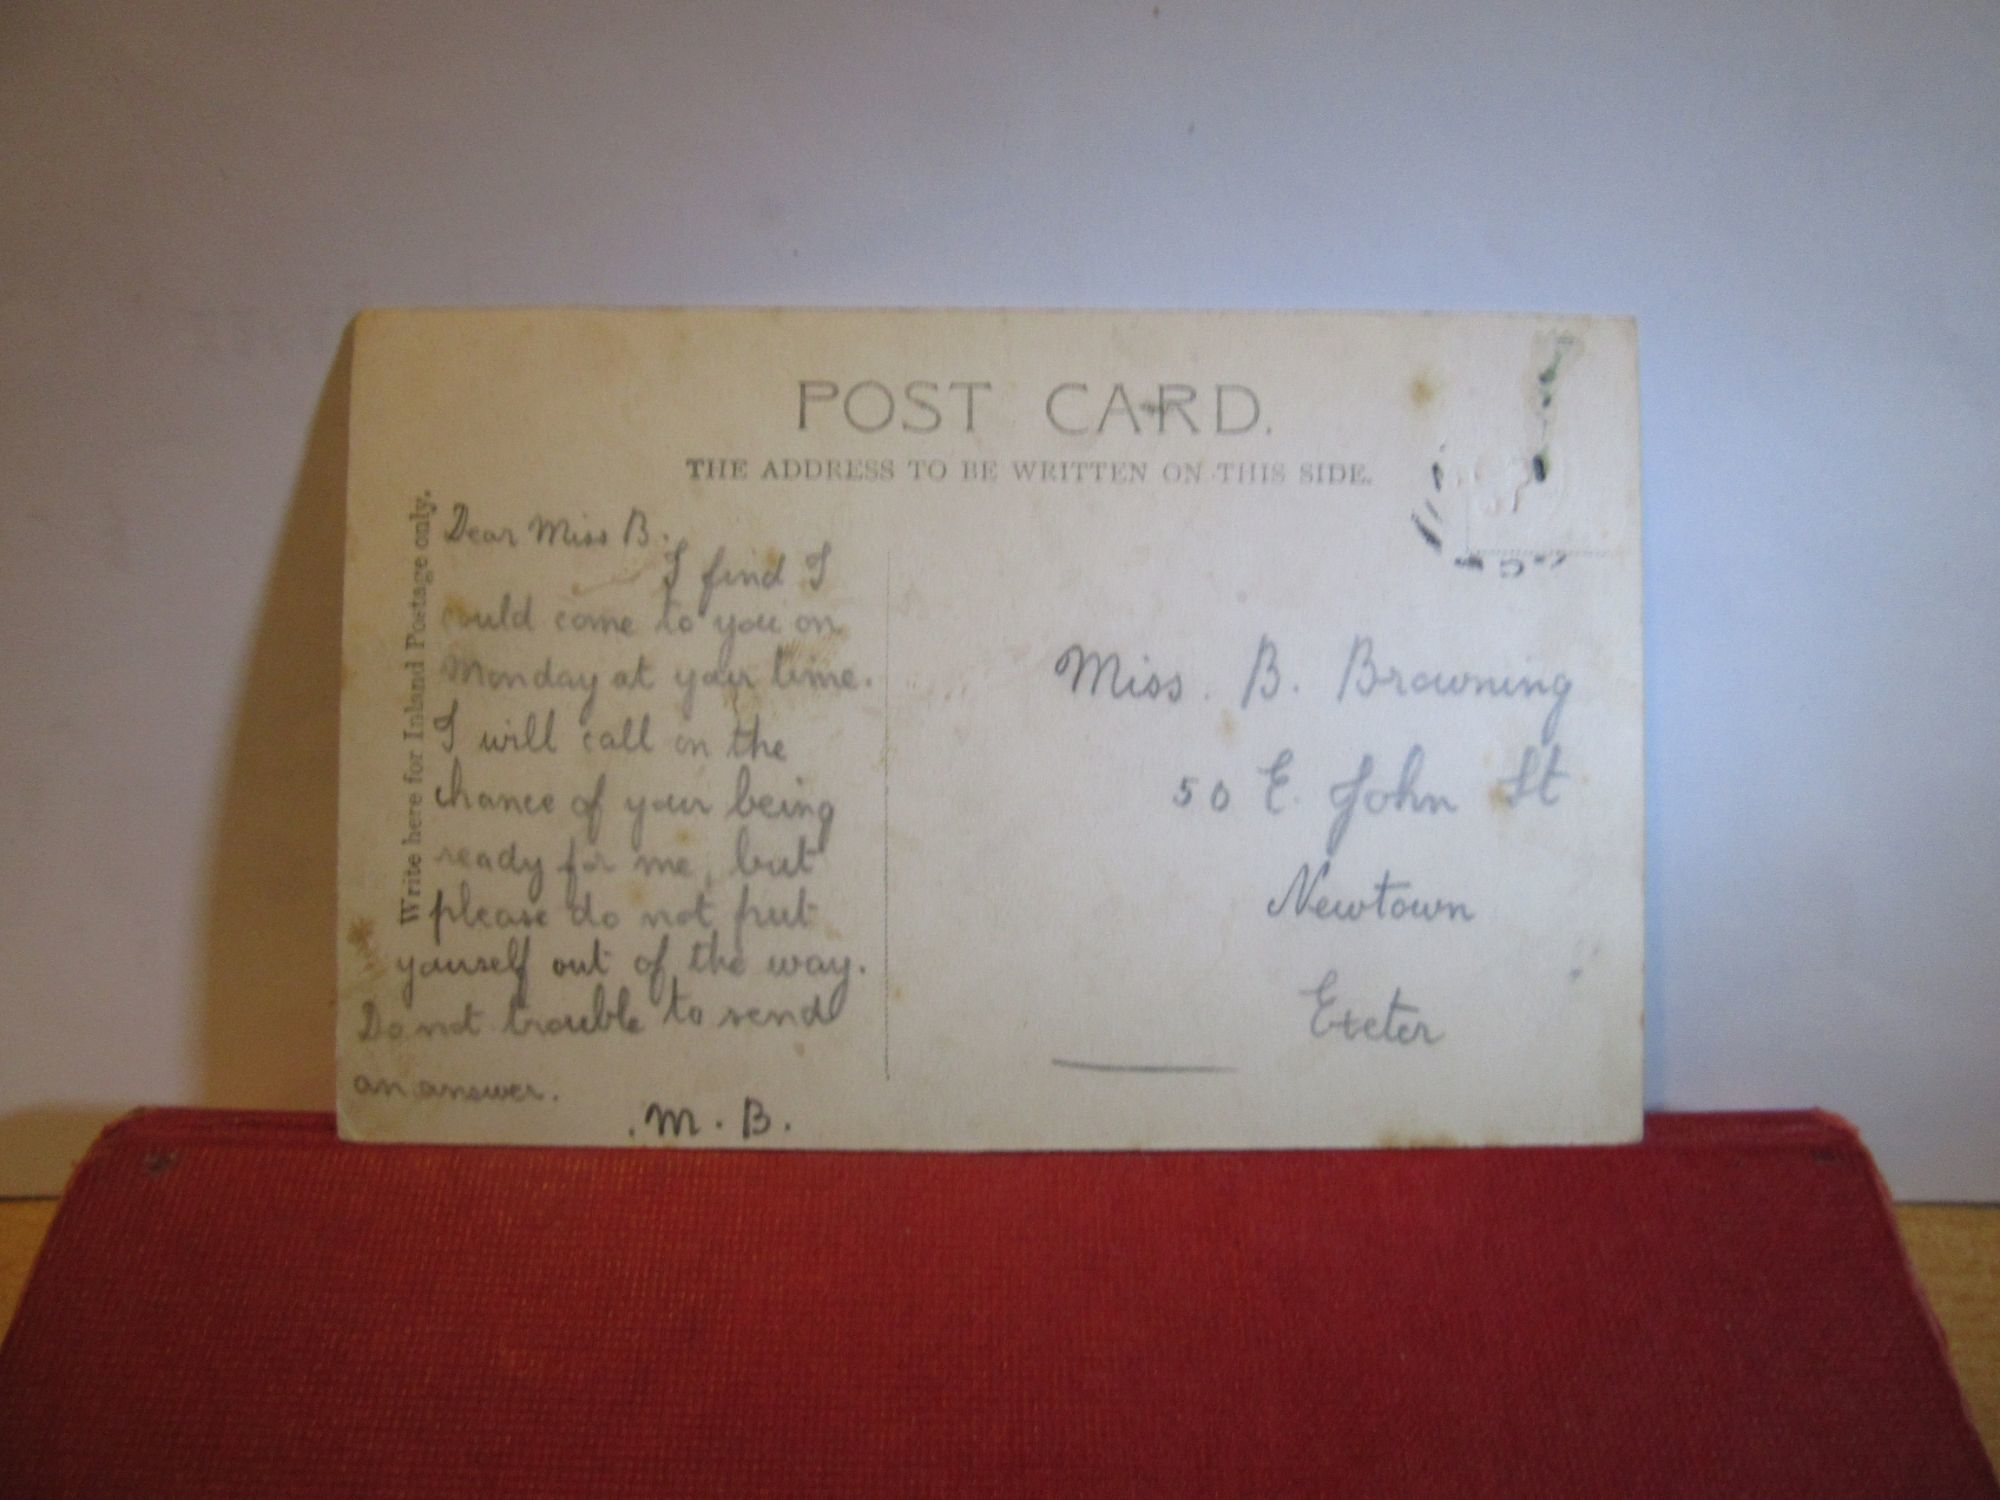 POST CARD.
THE ADDRESS TO BE WRITTEN ON THIS SIDE.
Write here for Inland Postage only.
Dear Miss B.
I find I
could come to you on
Monday at your time.
I will call on the
chance of your being
ready for me, but
please do not put
yourself out of the way.
Do not trouble to send
an answer.
.M. B.
Miss. B. Browning
50 E. John St
Newtown
Exeter